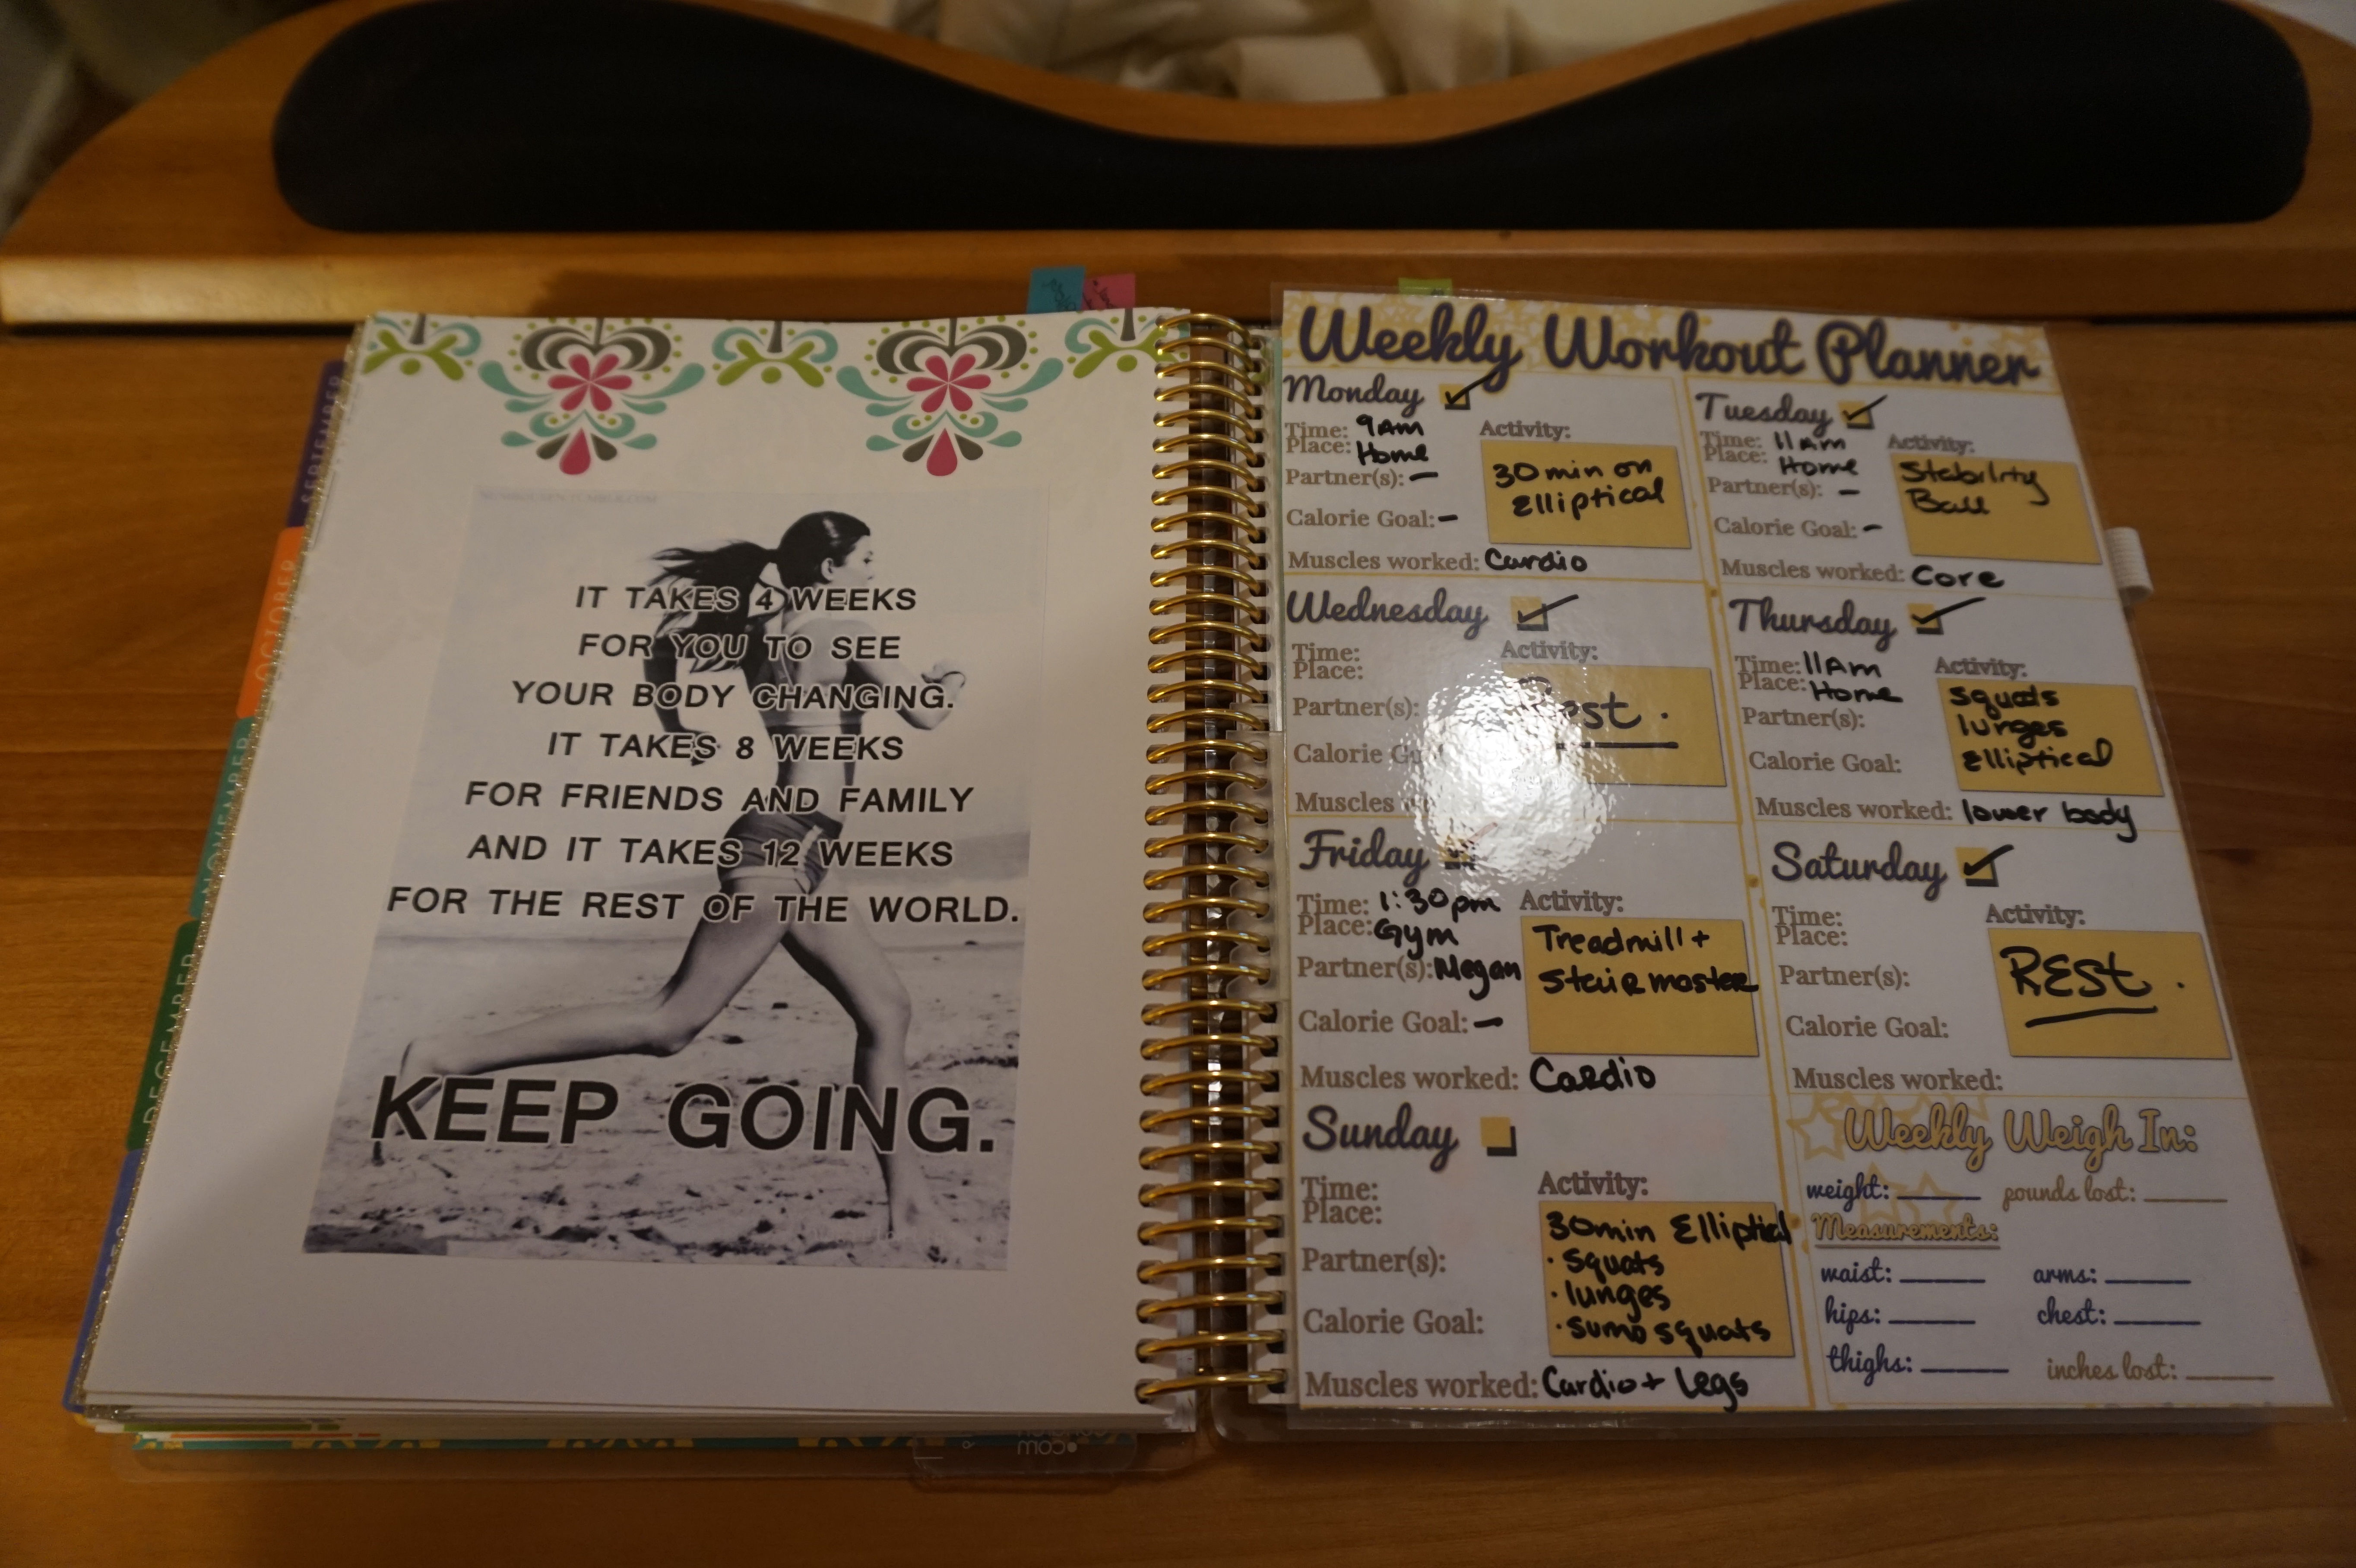 SEPTEMBER
OCTOBER
NOVEMBER
DECEMBER
IT TAKES 4 WEEKS
FOR YOU TO SEE
YOUR BODY CHANGING.
IT TAKES 8 WEEKS
FOR FRIENDS AND FAMILY
AND IT TAKES 12 WEEKS
FOR THE REST OF THE WORLD.
KEEP GOING.
Weekly Workout Planner
Monday
Time: 9Am
Place: Home
Partner(s): -
Calorie Goal: -
Activity:
30 min on
Elliptical
Muscles worked: Cardio
Tuesday
Time: 11Am
Place: Home
Partner(s): -
Calorie Goal: -
Activity:
Stability
Ball
Muscles worked: Core
Wednesday
Time:
Place:
Partner(s):
Calorie
Activity:
Rest.
Muscles
Thursday
Time: 11Am
Place: Home
Partner(s):
Calorie Goal:
Activity:
Squats
lunges
Elliptical
Muscles worked: lower body
Friday
Time: 1:30pm
Place: Gym
Partner(s): Megan
Calorie Goal: -
Activity:
Treadmill +
Stairmaster
Muscles worked: Cardio
Saturday
Time:
Place:
Partner(s):
Calorie Goal:
Activity:
REst.
Muscles worked:
Sunday
Time:
Place:
Partner(s):
Calorie Goal:
Activity:
30min Elliptical
· Squats
· lunges
· sumo squats
Muscles worked: Cardio + Legs
Weekly Weigh In:
weight: ______ pounds lost: ______
Measurements:
waist: ______ arms: ______
hips: ______ chest: ______
thighs: ______ inches lost: ______
.com